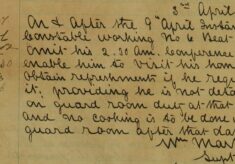 3rd April
On & after the 9th April Instant
Constable working No 6 Beat
omit his 2.30 am. conference
enable him to visit his home
obtain refreshment if he requ
it, providing he is not deta
on guard room duty at that
and no cooking is to be done
guard room after that da
Wm Mar
Supt